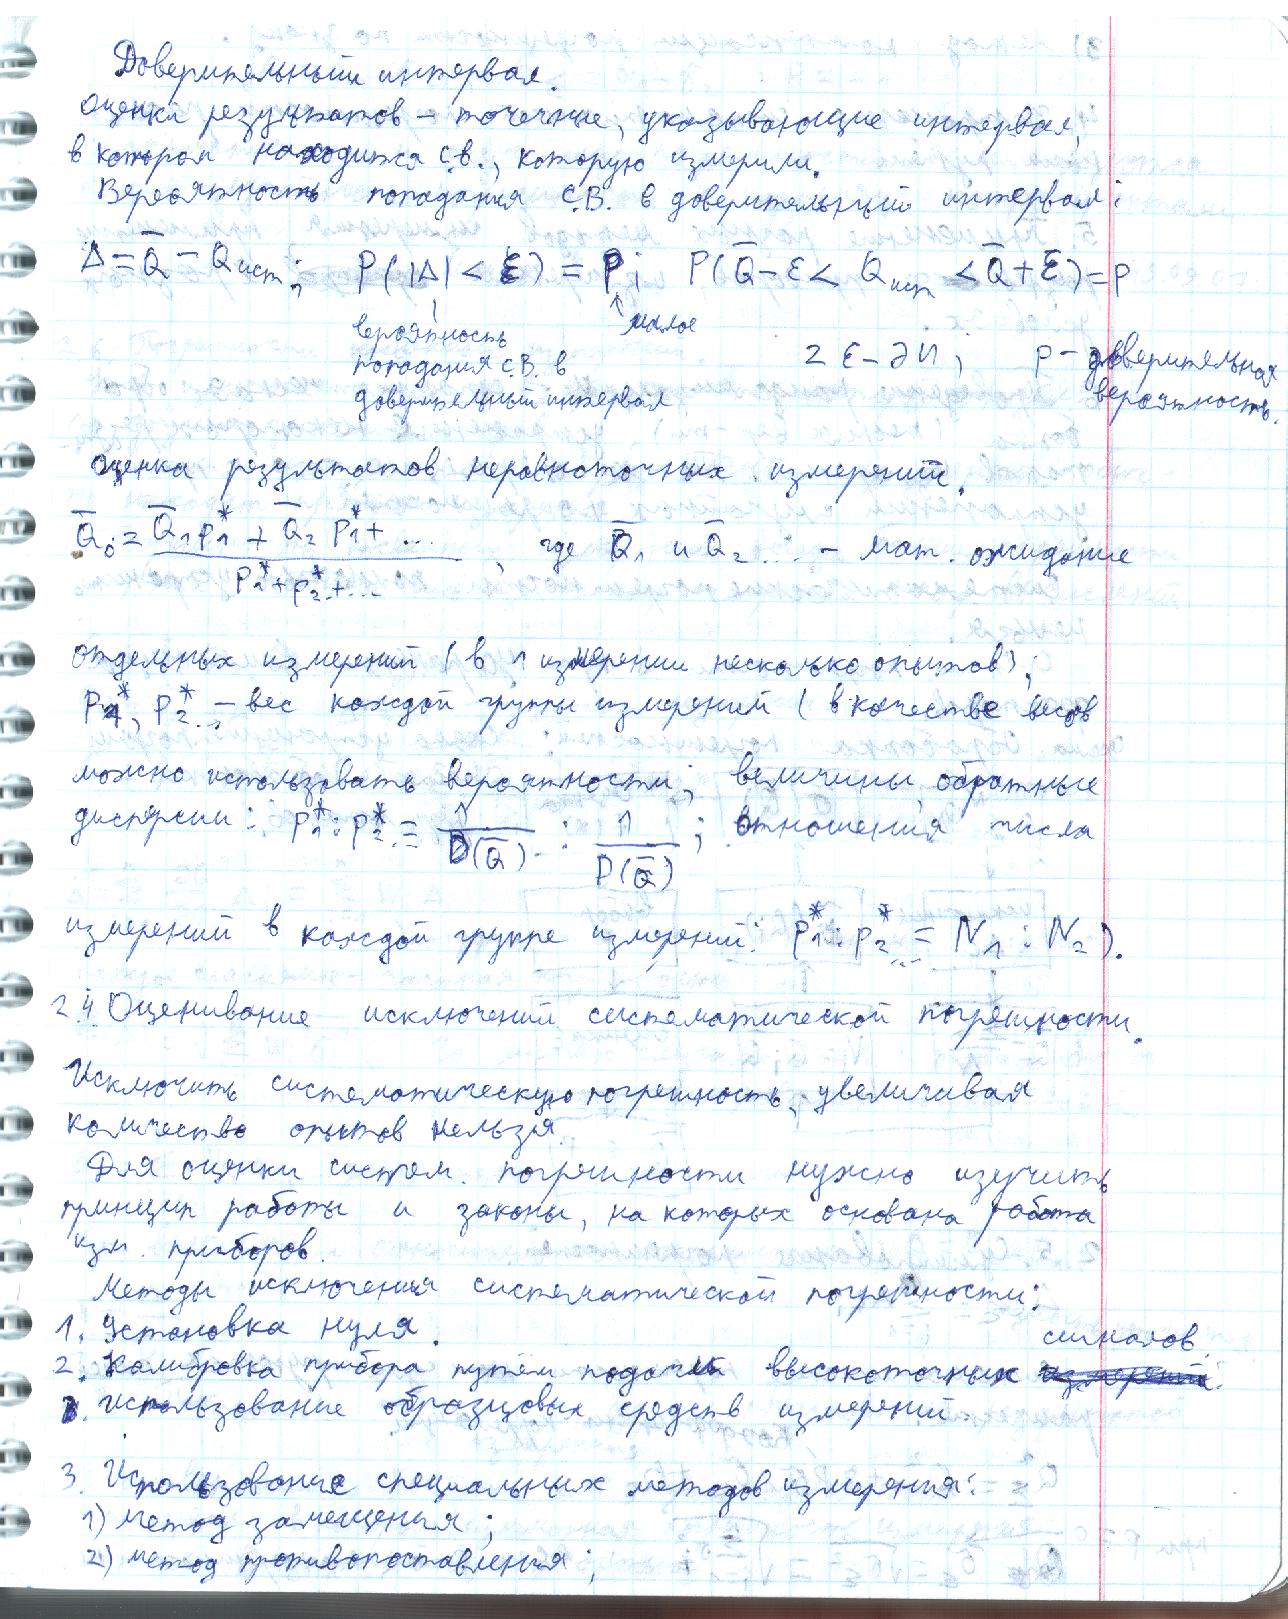 Доверительный интервал.
Оценки результатов – точечные, указывающие интервал,
в котором находится с.в., которую измерили.
Вероятность попадания С.В. в доверительный интервал:
Δ = Q̄ – Qист; P(|Δ| < ε) = P; P(Q̄ – ε < Qист < Q̄ + ε̄) = P
↑ малое
вероятность
попадания С.В. в
доверительный интервал
2ε – ДИ; P – доверительная
вероятность.
Оценка результатов неравноточных измерений.
Q̄₀ = (Q̄₁P₁* + Q̄₂P₁* + ...) / (P₁* + P₂* + ...), где Q̄₁ и Q̄₂ ... – мат. ожидание
отдельных измерений (в 1 измерении несколько опытов);
P₁*, P₂*... – вес каждой группы измерений (в качестве весов
можно использовать вероятности; величины, обратные
дисперсии: P₁* : P₂* ... = 1/D(Q̄) : 1/D(Q̄); отношения числа
измерений в каждой группе измерений: P₁* : P₂* ... = N₁ : N₂).
2.4. Оценивание исключений систематической погрешности.
Исключить систематическую погрешность, увеличивая
количество опытов нельзя.
Для оценки систем. погрешности нужно изучить
принцип работы и законы, на которых основана работа
изм. приборов.
Методы исключения систематической погрешности:
1. Установка нуля.
2. Калибровка прибора путём подачи высокоточных сигналов.
использование образцовых средств измерений
3. Использование специальных методов измерения:
1) метод замещения;
2) метод противопоставления;